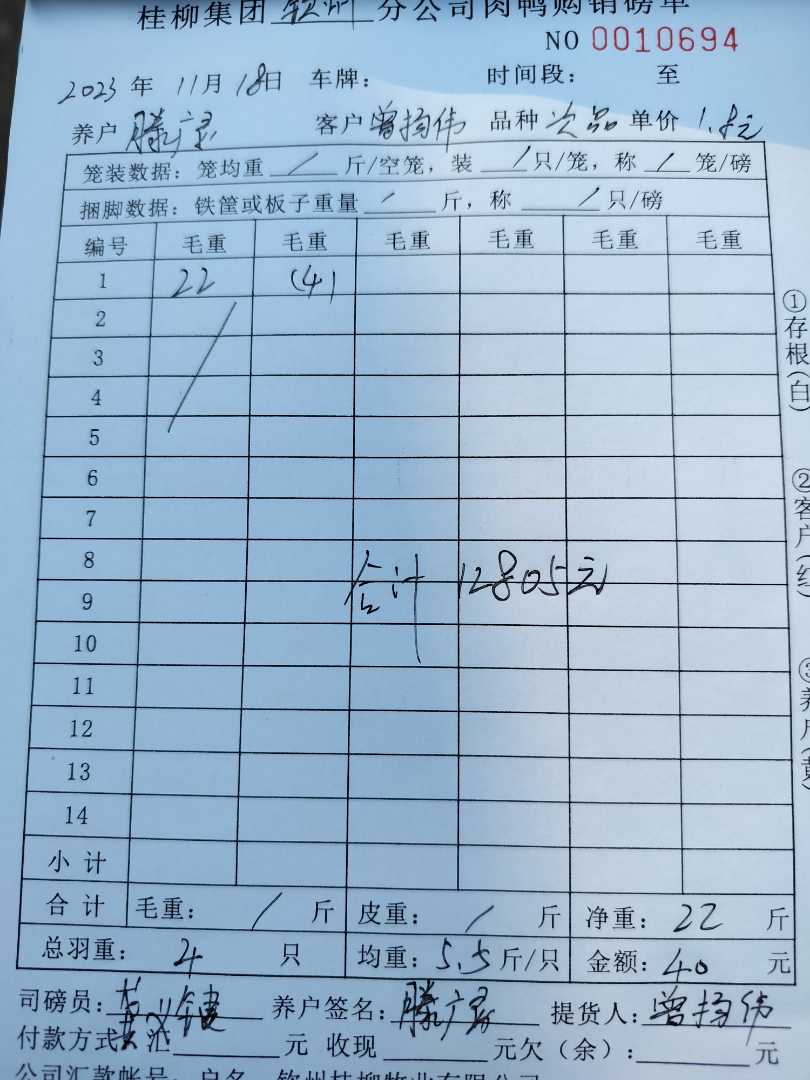 桂柳集团 钦州 分公司肉鸭购销磅单
NO 0010694
2023 年 11月 18日 车牌: 时间段: 至
养户 滕广 客户 曾扬伟 品种 次品 单价 1.8元
笼装数据: 笼均重 / 斤/空笼, 装 / 只/笼, 称 / 笼/磅
捆脚数据: 铁筐或板子重量 / 斤, 称 / 只/磅
编号 毛重 毛重 毛重 毛重 毛重 毛重
1 22 (4)
2
3
4
5
6
7
8
合计 12805元
9
10
11
12
13
14
小计
合计 毛重: / 斤 皮重: / 斤 净重: 22 斤
总羽重: 4 只 均重: 5.5 斤/只 金额: 40 元
司磅员: 养户签名: 滕广 提货人: 曾扬伟
付款方式: 汇 元 收现 元欠(余): 元
公司汇款帐号: 户名 钦州桂柳牧业有限公司
①存根(白)
②客户(红)
③养户(黄)